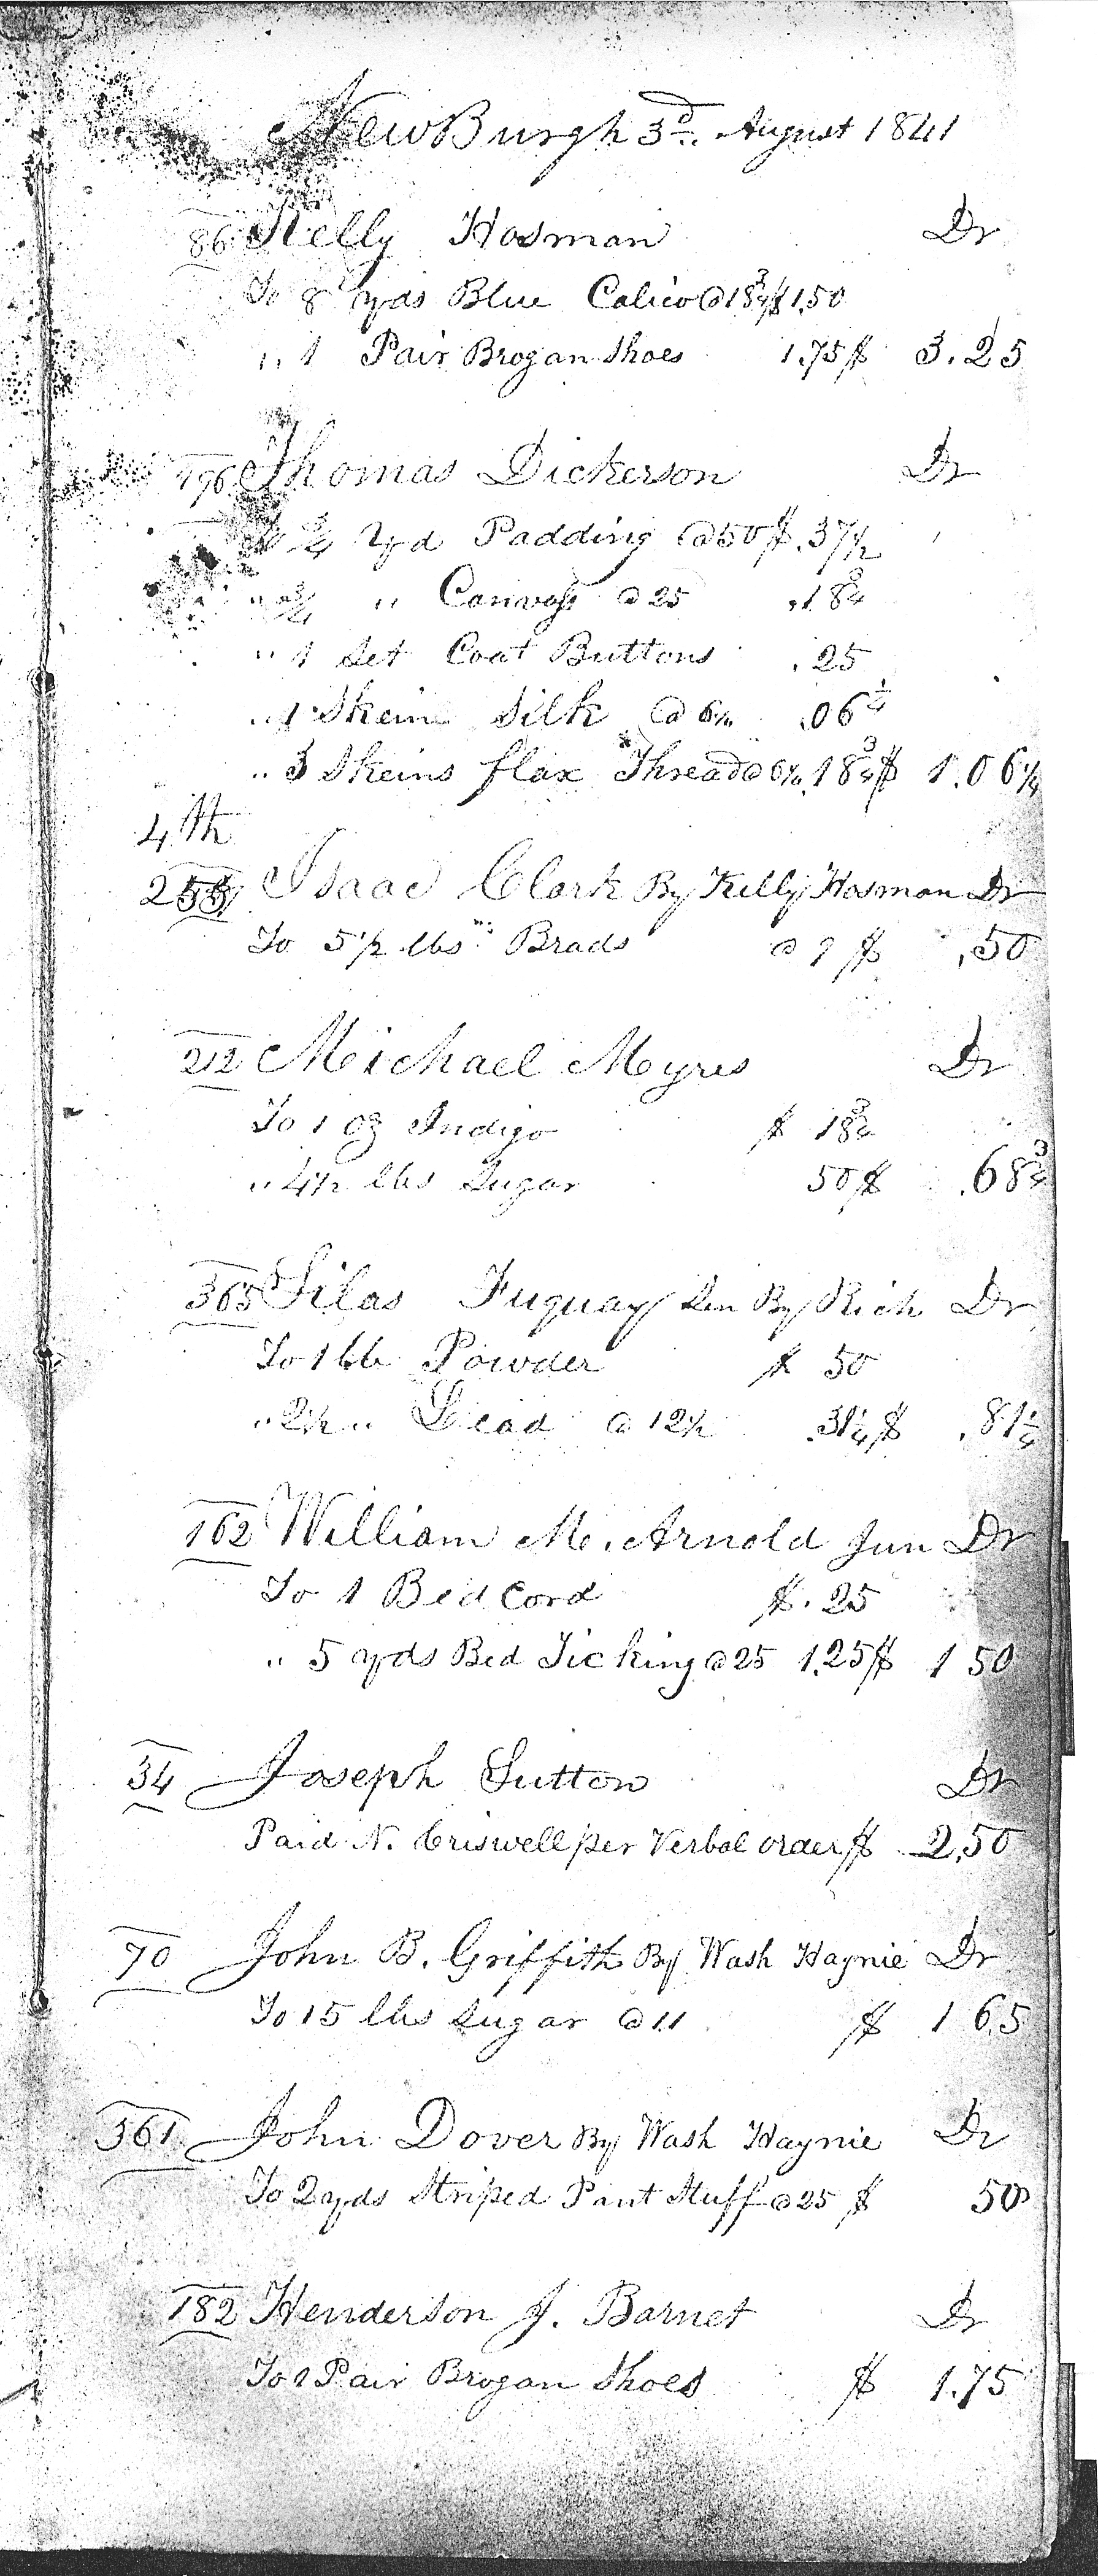 NewBurgh 3d.. August 1841
86 Kelly Hosman Dr
To 8 yds Blue Calico @ 18 3/4 $ 1.50
" 1 Pair Brogan Shoes 1.75 $ 3.25
196 Thomas Dickerson Dr
3/4 Yd Padding @ 50 $ .37 1/2
" 3/4 " Canvass @ 25 .18 3/4
" 1 Set Coat Buttons .25
" 1 Skein Silk @ 6 1/4 .06 1/4
" 3 Skeins flax Thread @ 6 1/4 .18 3/4 $ 1.06 1/4
4th
Isaac Clark By Kelly Hosman Dr
To 5 1/2 lbs Brads @ 9 $ .50
212 Michael Meyres Dr
To 1 oz Indigo $ 18 3/4
" 4 1/2 lbs Sugar 50 $ .68 3/4
365 Silas Fuquay Sen By Rich Dr
To 1 lb Powder $ 50
" 2 1/2 " Lead @ 12 1/2 .31 1/4 $ .81 1/4
162 William M. Arnold Jun Dr
To 1 Bed Cord $ .25
" 5 yds Bed Ticking @ 25 1.25 $ 1 50
34 Joseph Sutton Dr
Paid N. Criswell per Verbal order $ 2.50
70 John B. Griffith By Wash Haynie Dr
To 15 lbs Sugar @ 11 $ 1 65
361 John Dover By Wash Haynie Dr
To 2 yds Striped Pant Stuff @ 25 $ 50
182 Henderson J. Barnet Dr
To 1 Pair Brogan Shoes $ 1.75